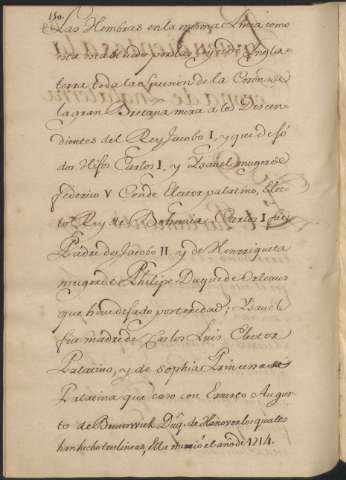 150.
las Hembras en la misma Linea como
esta establecido por las Leyes de Ingla-
terra toda la sucesion de la Corona de
la gran Bretaña mira a los Descen-
dientes del Rey Jacobo I, y que dejó
dos Hijos Carlos I, y Ysavel muger de
Federico V Conde Elector palatino, Elec-
to Rey de Bohemia, Carlos I fue
Padre de Jacobo II y de Henriqueta
muger de Philipe Duque de Orleans
que han dejado posteridad; Ysavel
fue madre de Carlos Luis Elector
Palatino, y de Sophia Princesa
Palatina que caso con Ernesto Augus-
to de Brunswick Duq. de Hanover los quales
han hecho tres lineas, ella murió el año de 1714.